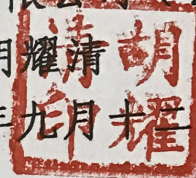 耀清
年九月十
胡耀
清印